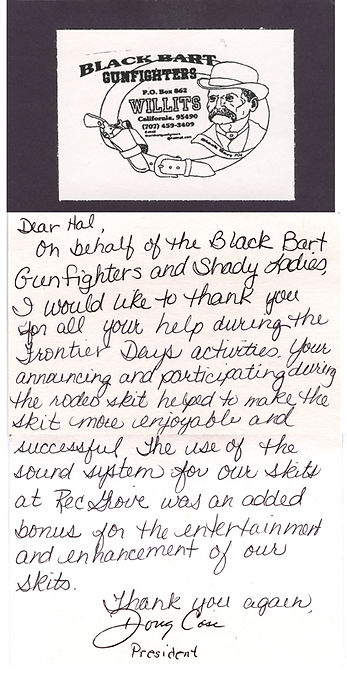 BLACK BART
GUNFIGHTERS
P.O. Box 862
WILLITS
California, 95490
(707) 459-3409
Dear Hal,
On behalf of the Black Bart
Gunfighters and Shady Ladies,
I would like to thank you
for all your help during the
Frontier Days activities. Your
announcing and participating during
the rodeo skit helped to make the
skit more enjoyable and
successful. The use of the
sound system for our skits
at Rec Grove was an added
bonus for the entertainment
and enhancement of our
skits.
Thank you again,
Doug Case
President